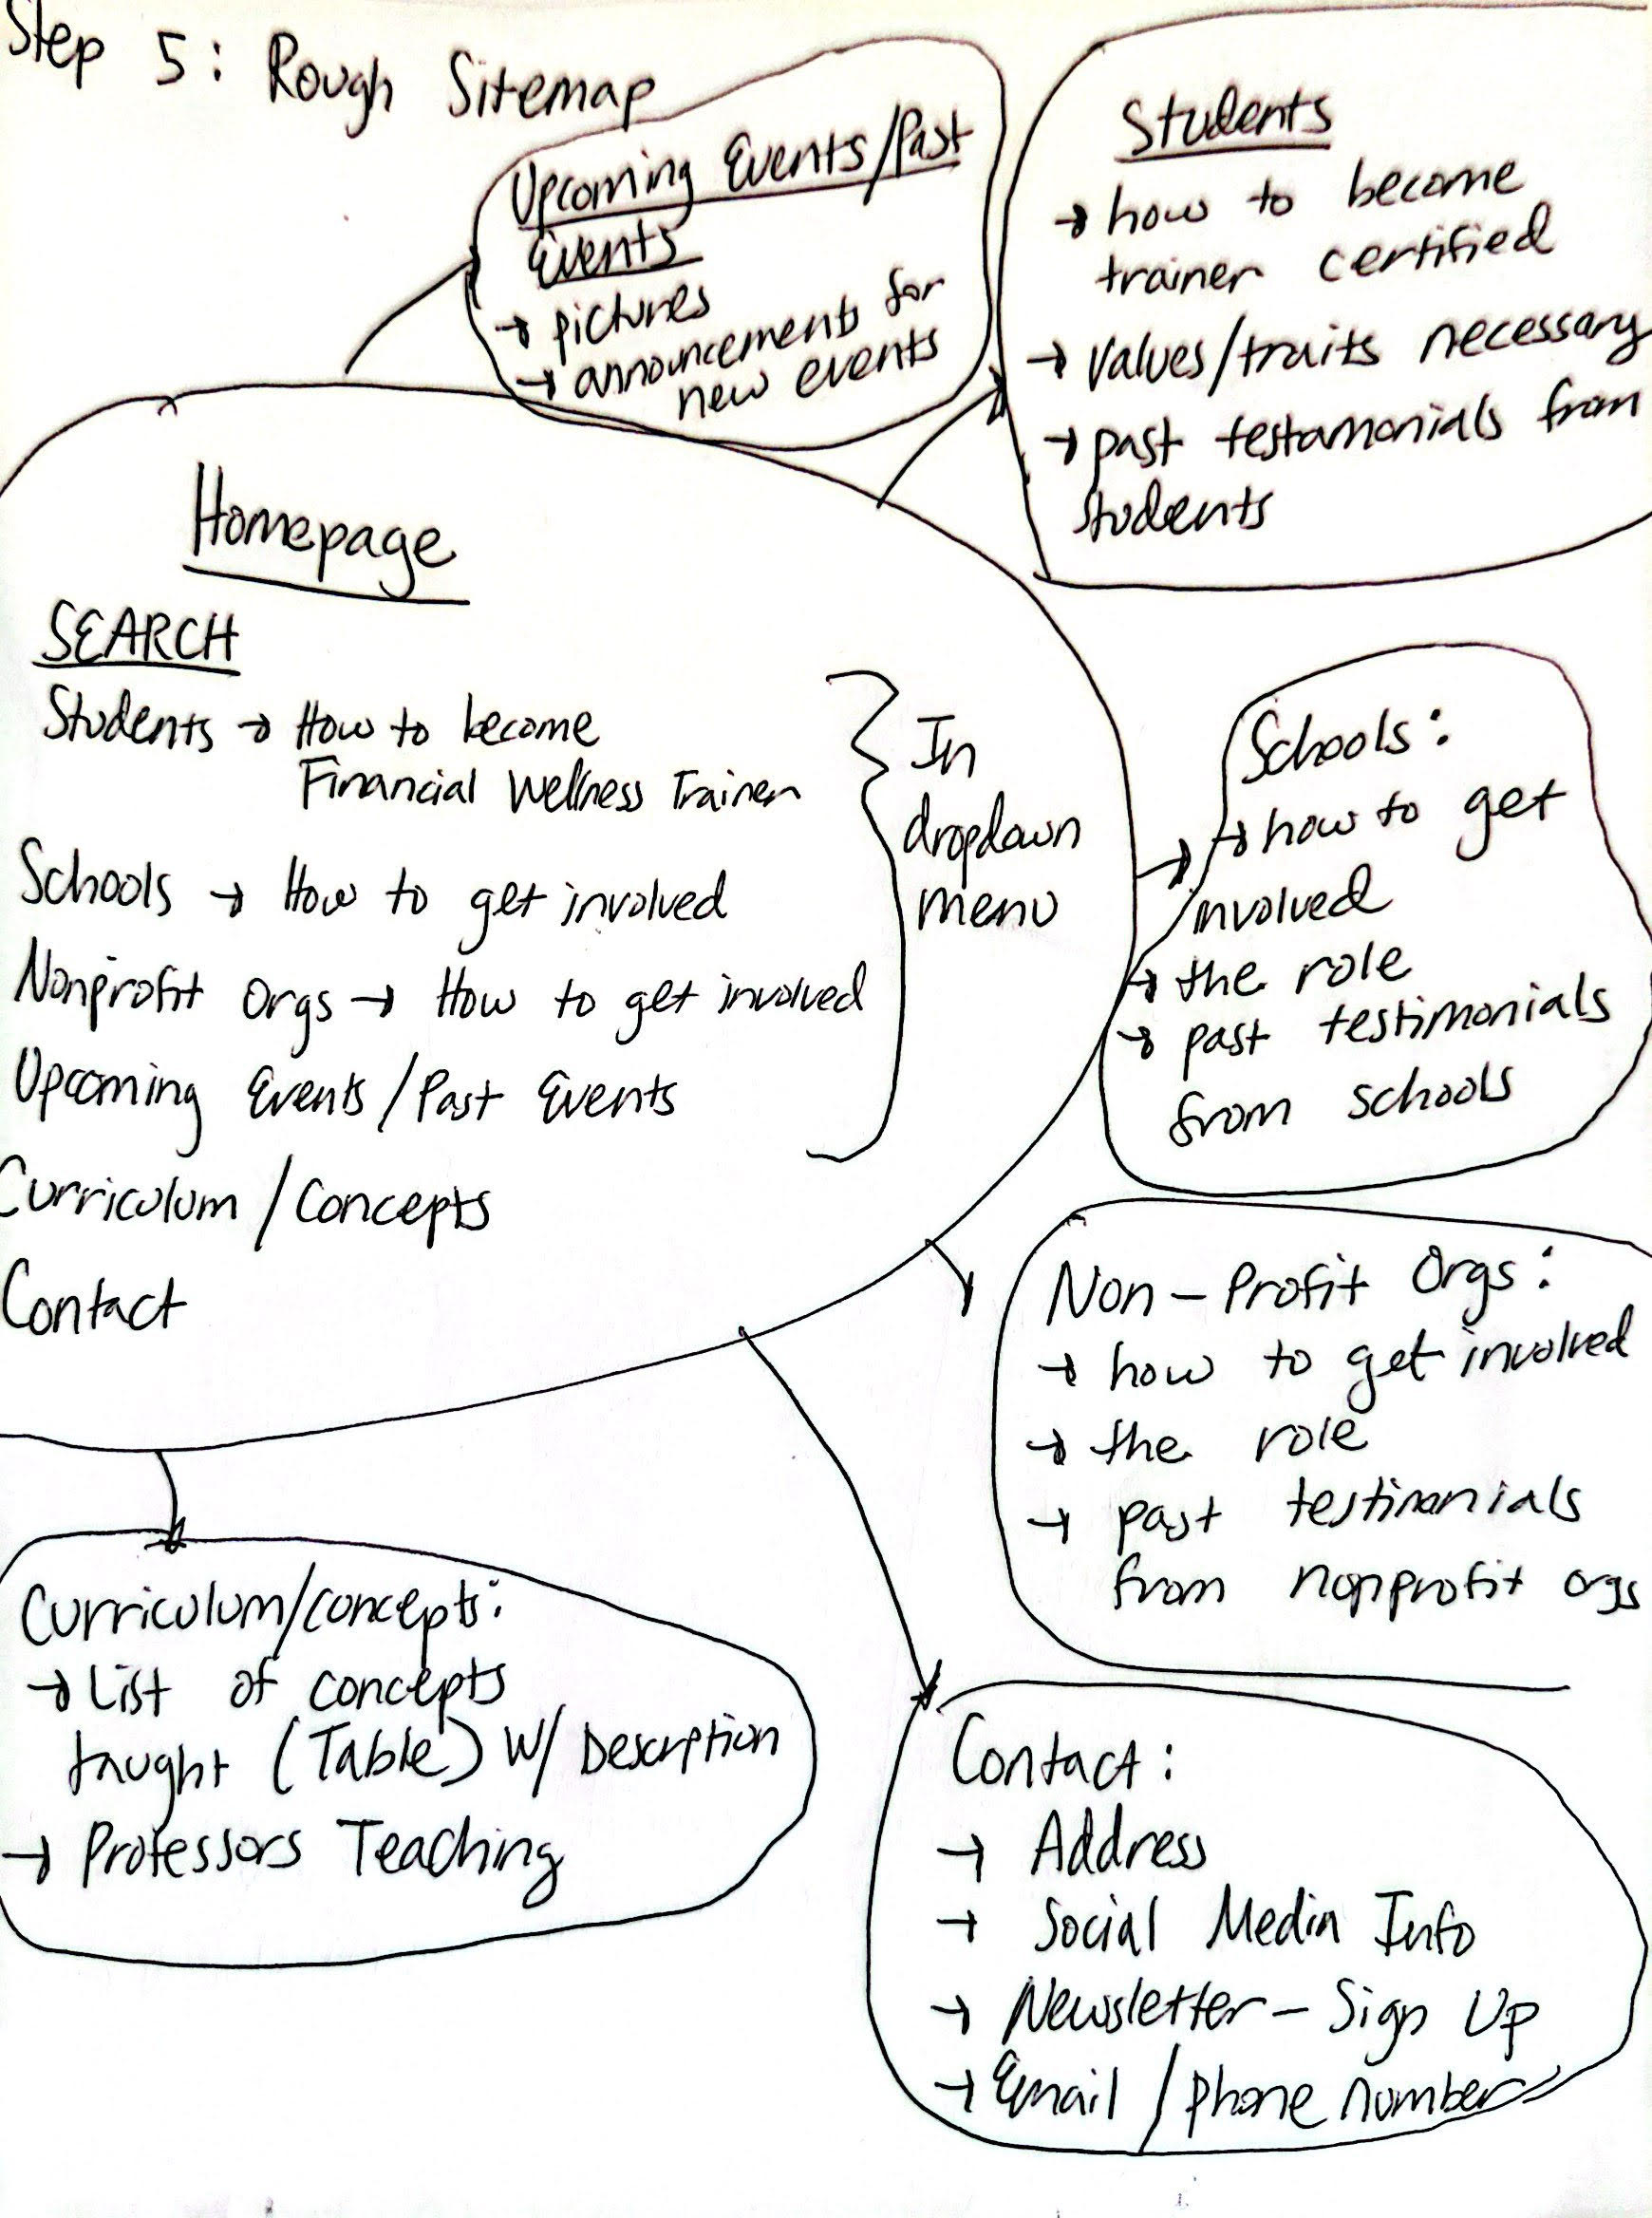 Step 5: Rough Sitemap
Upcoming Events/Past
Events
→ pictures
→ announcements for
new events
Students
→ how to become
trainer certified
→ values/traits necessary
→ past testamonials from
students
Homepage
SEARCH
Students → How to become
Financial Wellness Trainer
Schools → How to get involved
Nonprofit Orgs → How to get involved
Upcoming Events/Past Events
Curriculum/Concepts
Contact
In
dropdown
menu
Schools:
→ how to get
involved
→ the role
→ past testimonials
from schools
Non-Profit Orgs:
→ how to get involved
→ the role
→ past testimonials
from nonprofit orgs
Curriculum/concepts:
→ List of concepts
taught (Table) w/ Description
→ Professors Teaching
Contact:
→ Address
→ Social Media Info
→ Newsletter - Sign Up
→ Email / phone number